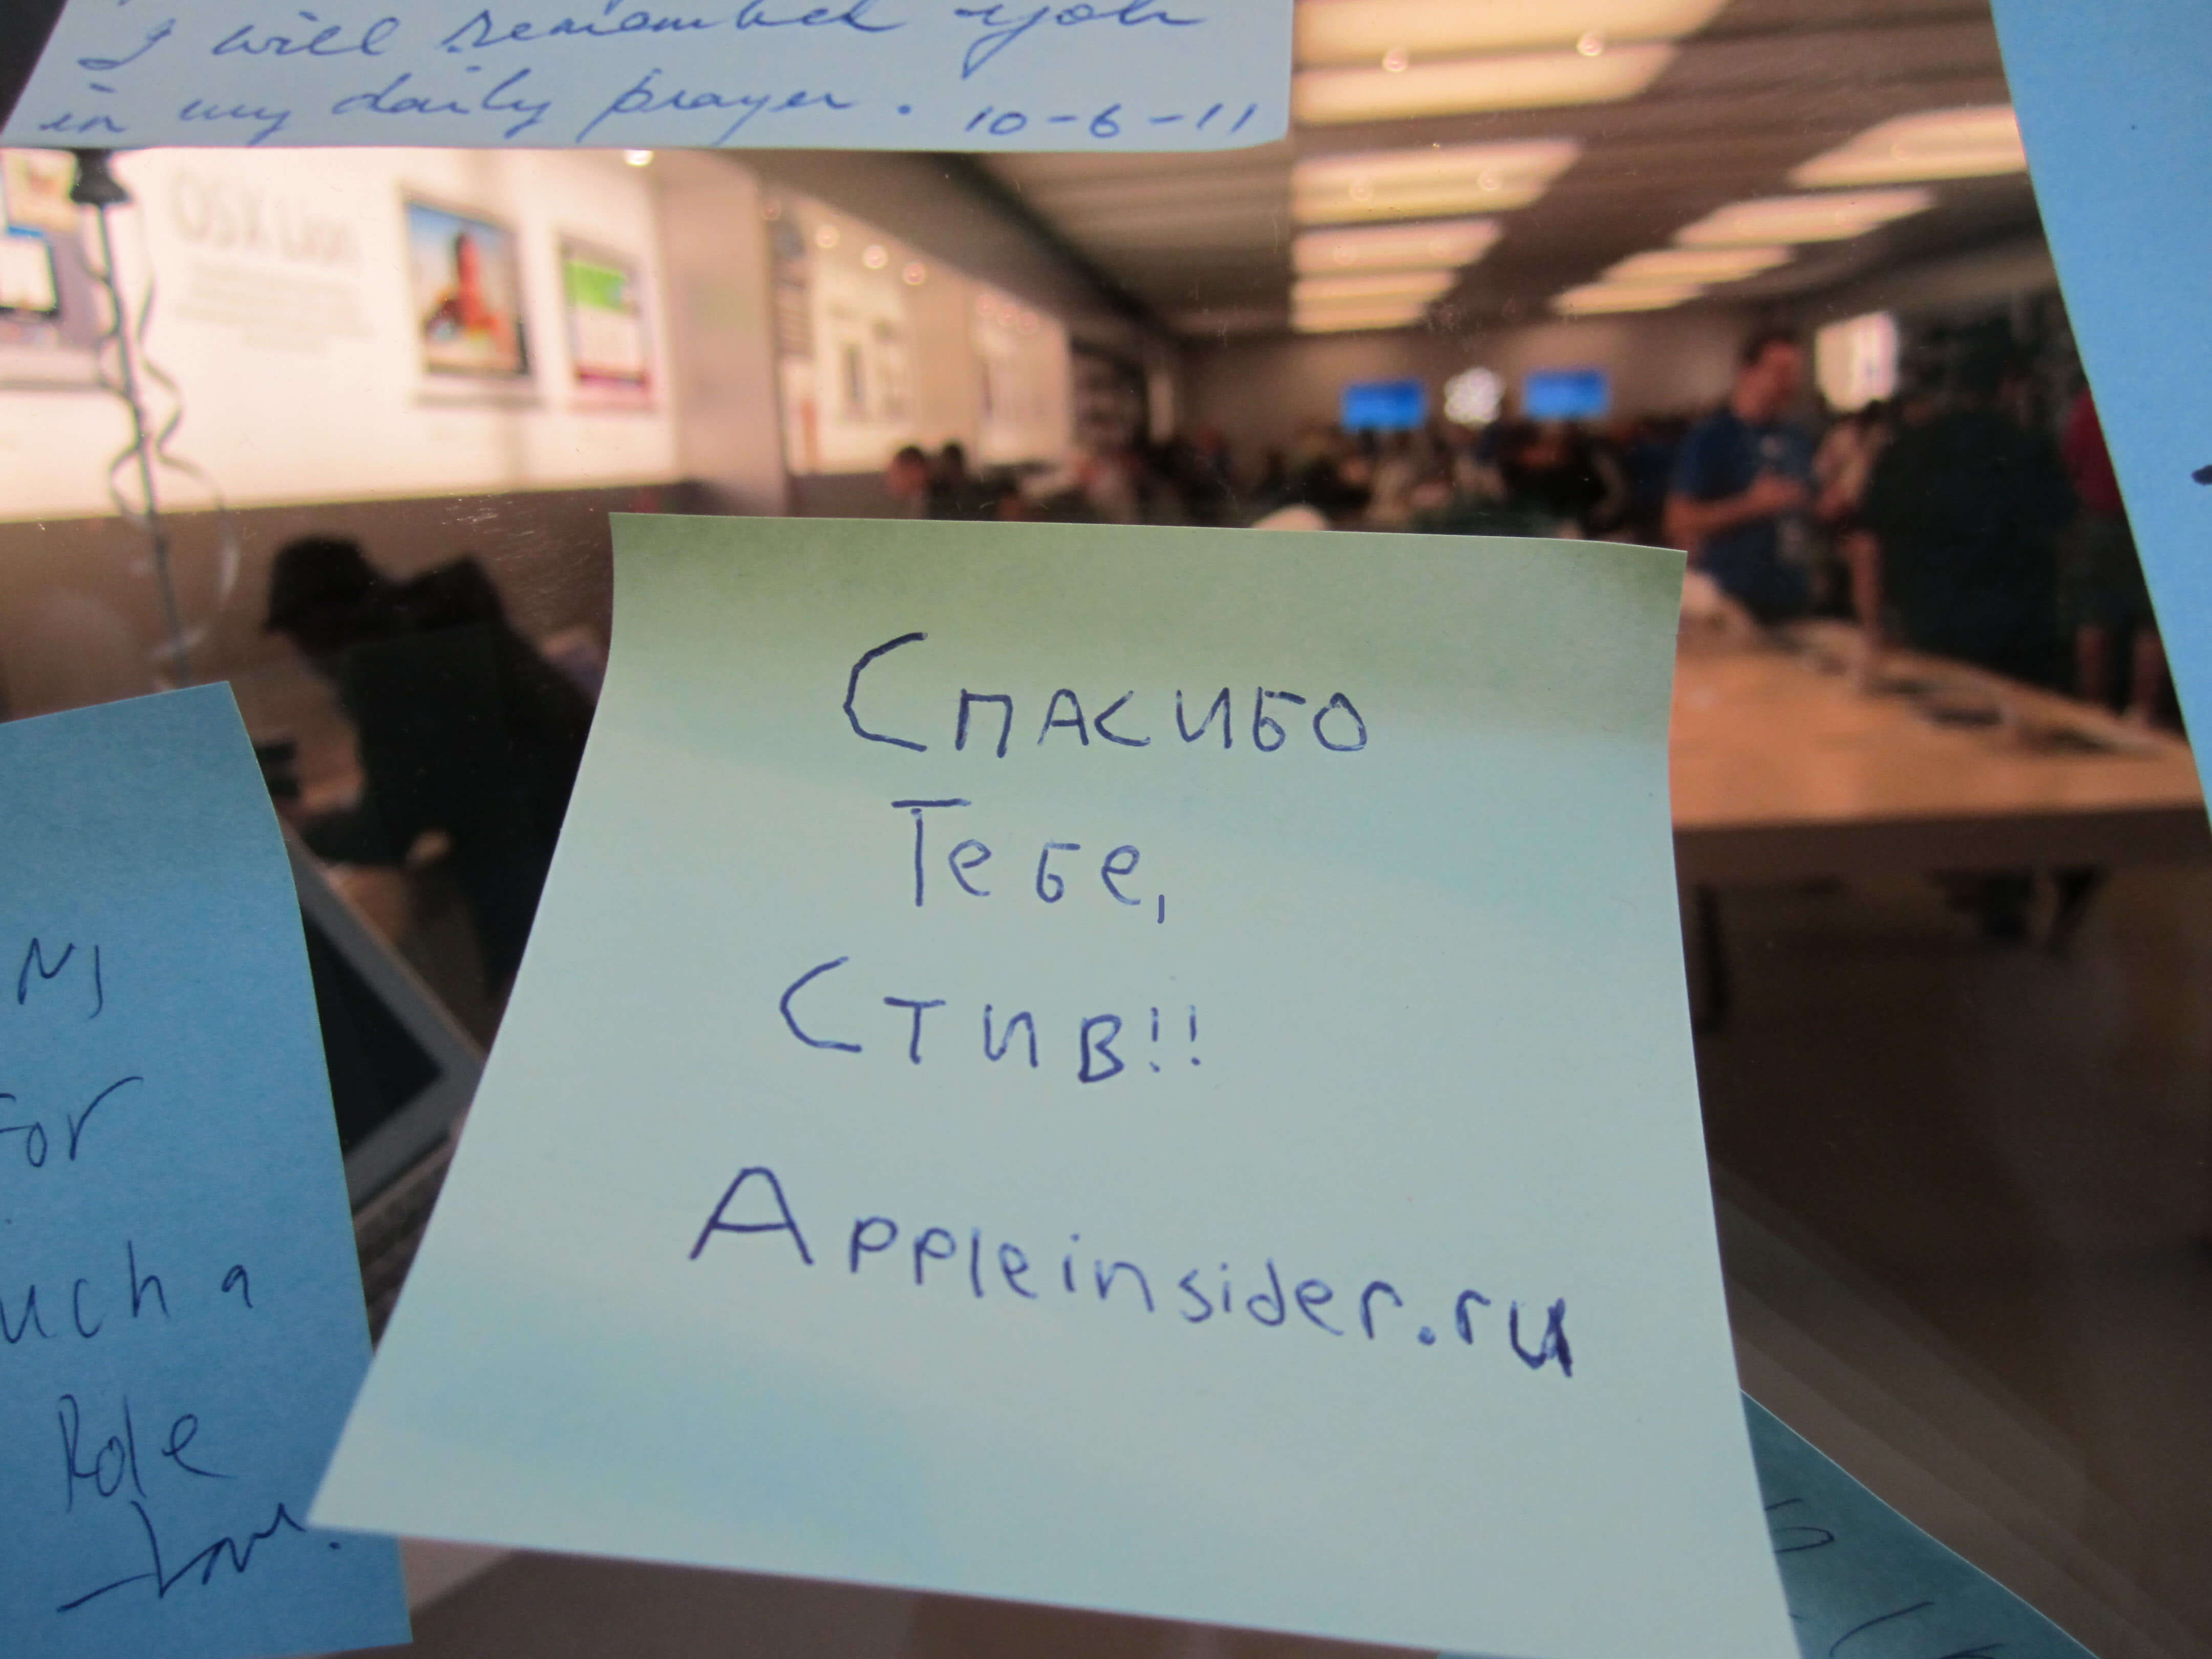 I will remember you
in my daily prayer. 10-6-11
OSX Lion
Спасибо
Тебе,
Стив!!
Appleinsider.ru
for
a
Role